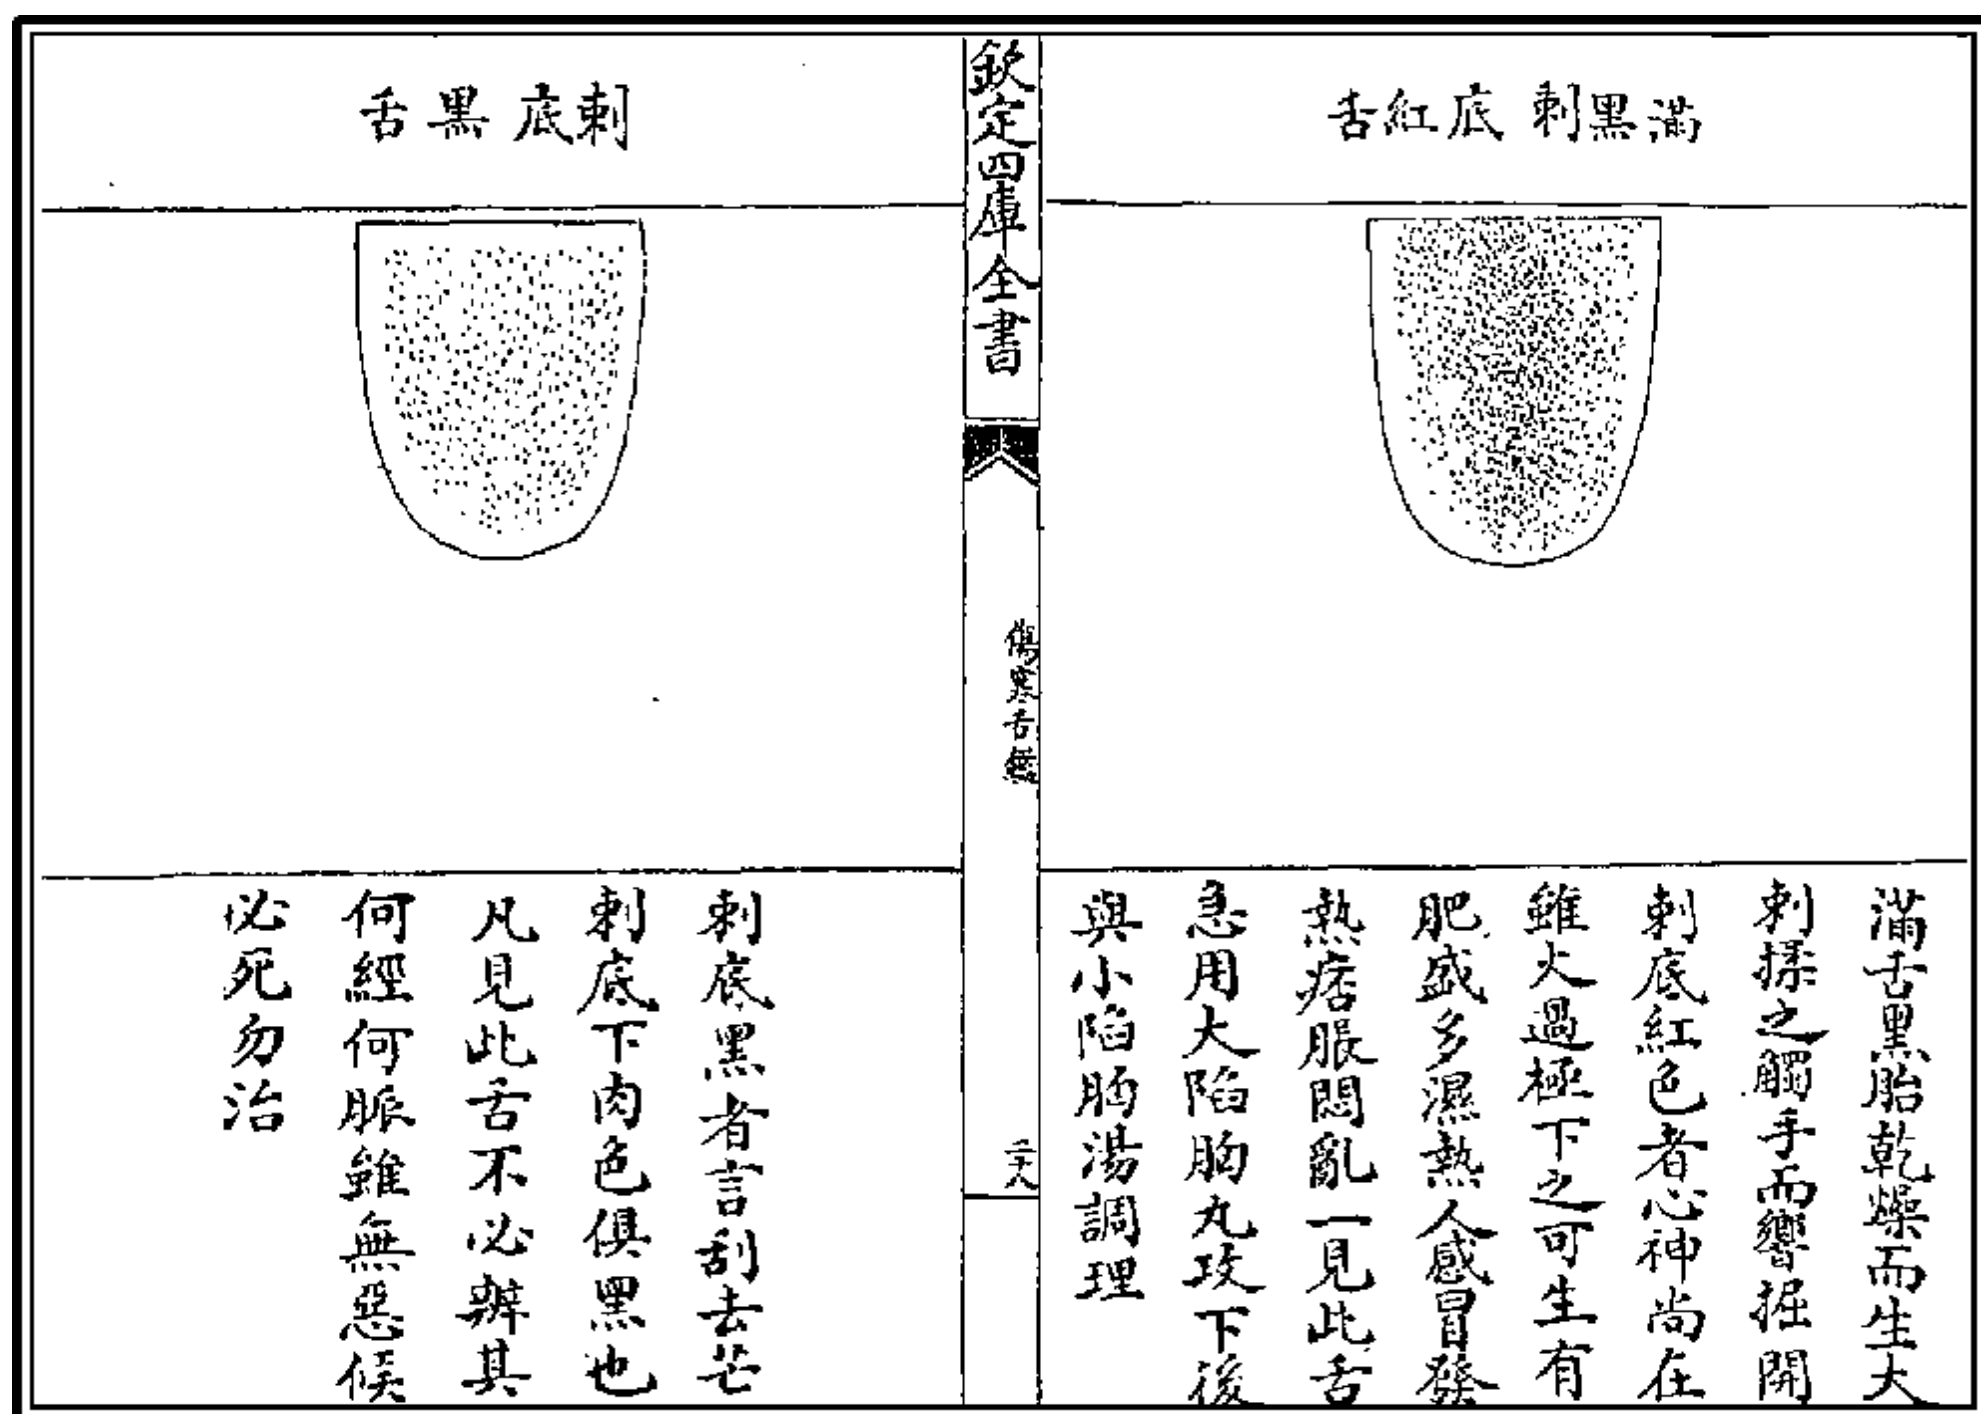 滿黑刺底紅舌
滿舌黑胎乾燥而生大
刺揉之觸手而響掘開
刺底紅色者心神尚在
雖火過極下之可生有
肥盛多濕熱人感冒發
熱痞脹悶亂一見此舌
急用大陷胸丸攻下後
與小陷胸湯調理
欽定四庫全書
傷寒舌鑑
二十八
刺底黑舌
刺底黑者言刮去芒
刺底下肉色俱黑也
凡見此舌不必辨其
何經何脈雖無惡候
必死勿治